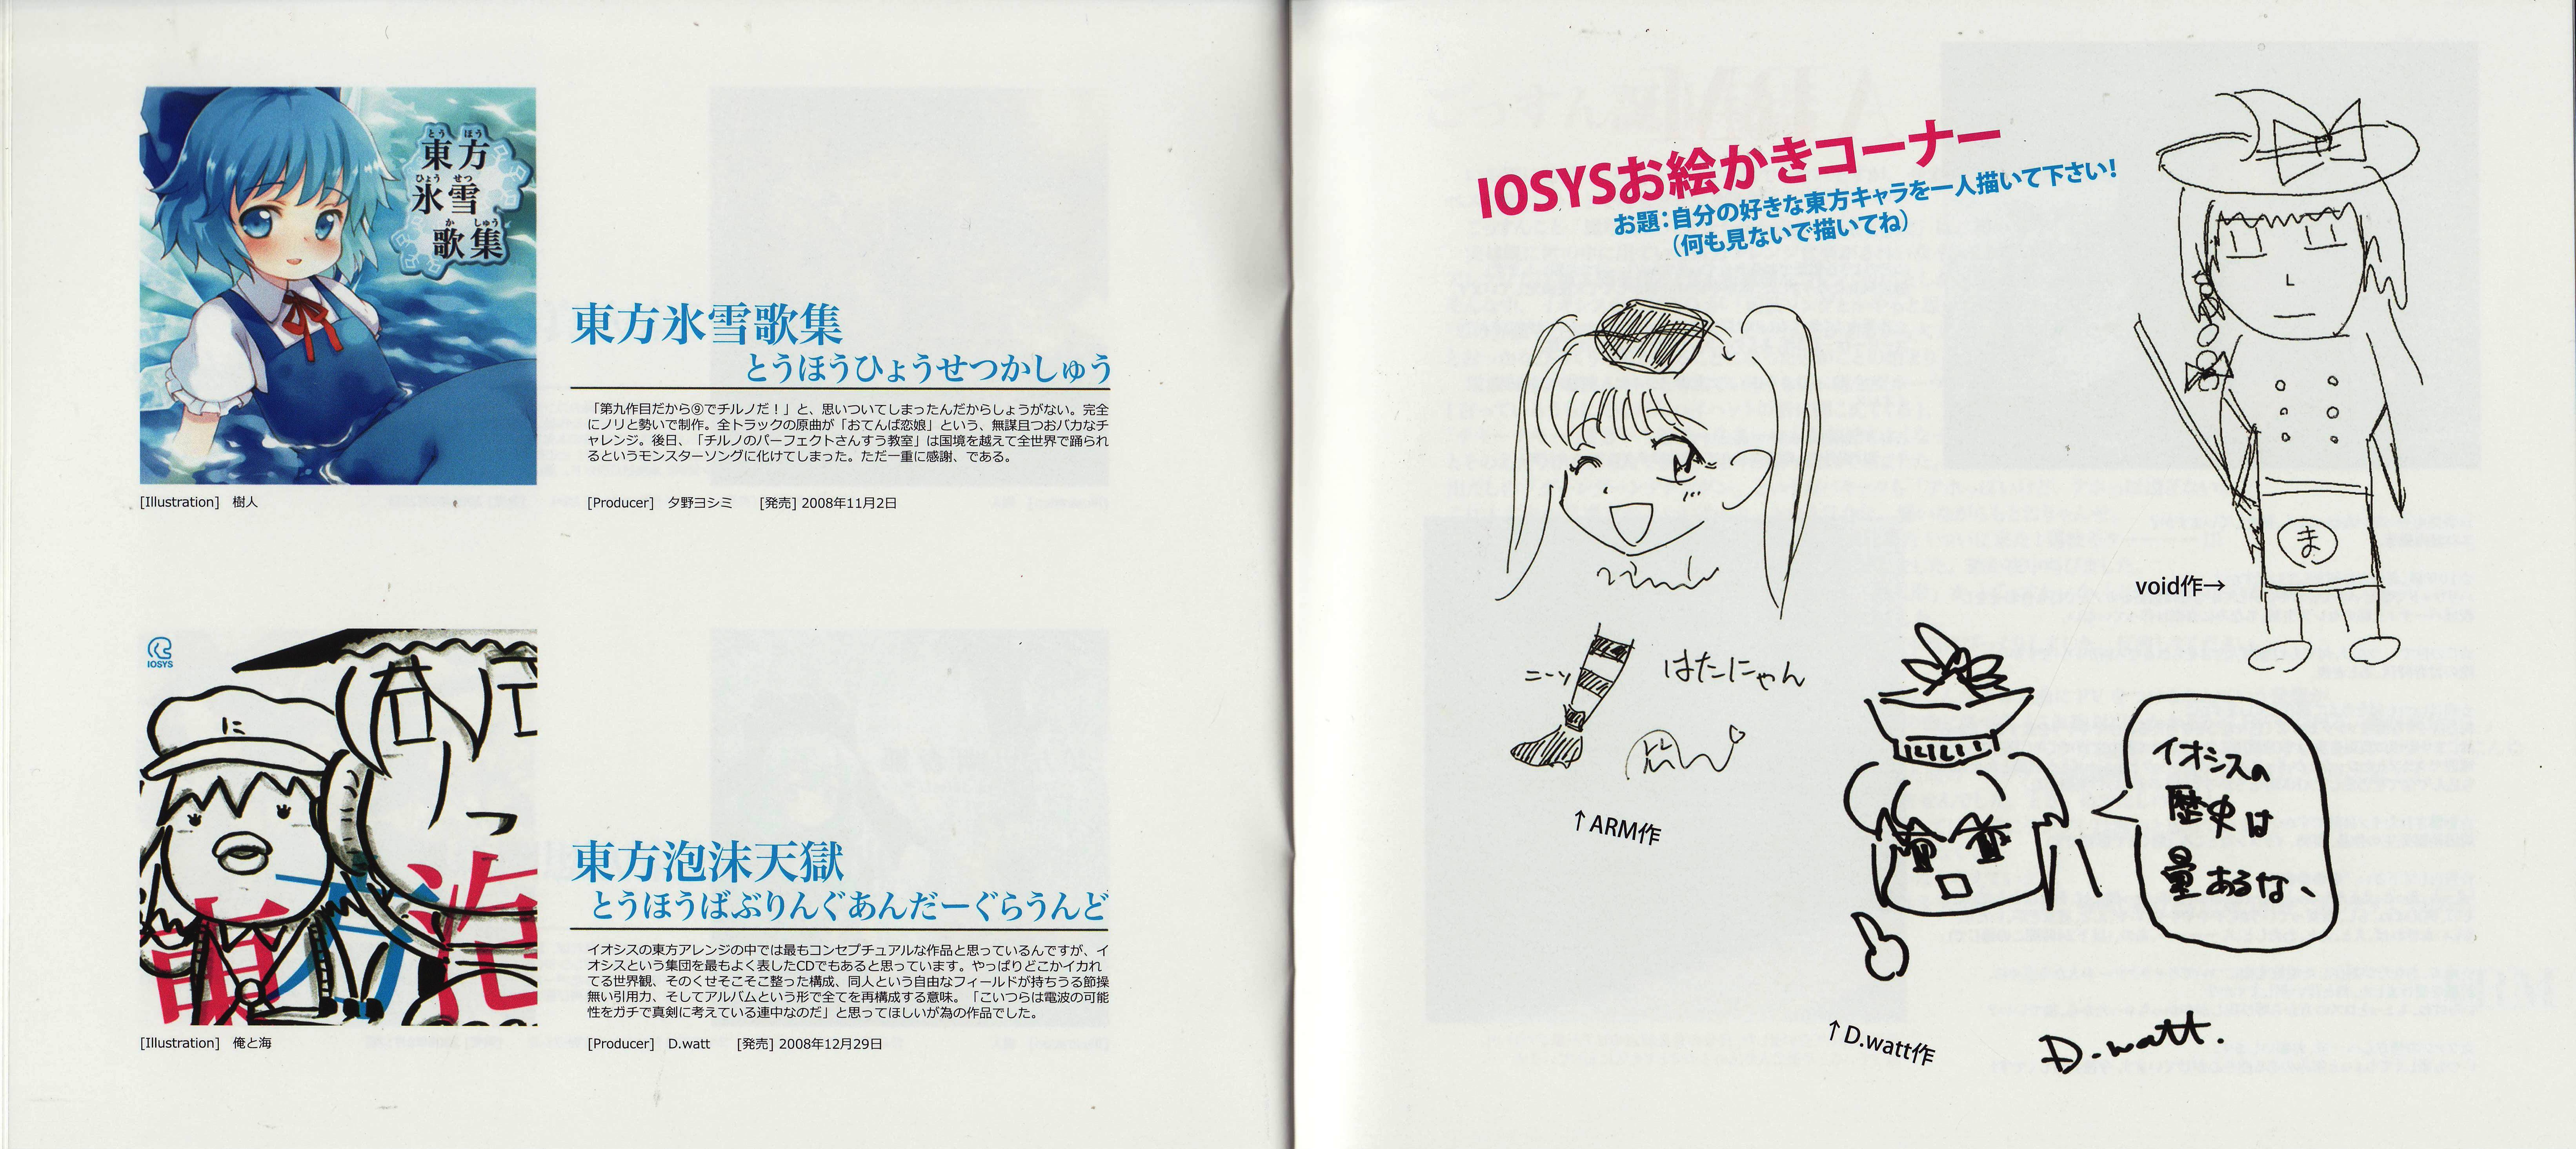 とう ほう
東方
ひょう せつ
氷雪
か しゅう
歌集
東方氷雪歌集
とうほうひょうせつかしゅう
「第九作目だから⑨でチルノだ！」と、思いついてしまったんだからしょうがない。完全
にノリと勢いで制作。全トラックの原曲が「おてんば恋娘」という、無謀且つおバカなチ
ャレンジ。後日、「チルノのパーフェクトさんすう教室」は国境を越えて全世界で踊られ
るというモンスターソングに化けてしまった。ただ一重に感謝、である。
[Illustration] 樹人
[Producer] 夕野ヨシミ [発売] 2008年11月2日
IOSYS
に
東方泡
東方泡沫天獄
とうほうばぶりんぐあんだーぐらうんど
イオシスの東方アレンジの中では最もコンセプチュアルな作品と思っているんですが、イ
オシスという集団を最もよく表したCDでもあると思っています。やっぱりどこかイカれ
てる世界観、そのくせそこそこ整った構成、同人という自由なフィールドが持ちうる節操
無い引用力、そしてアルバムという形で全てを再構成する意味。「こいつらは電波の可能
性をガチで真剣に考えている連中なのだ」と思ってほしいが為の作品でした。
[Illustration] 俺と海
[Producer] D.watt [発売] 2008年12月29日
IOSYSお絵かきコーナー
お題：自分の好きな東方キャラを一人描いて下さい！
（何も見ないで描いてね）
ま
void作→
ニーソ
はたにゃん
↑ARM作
イオシスの
歴史は
量あるな、
↑D.watt作
D.watt.